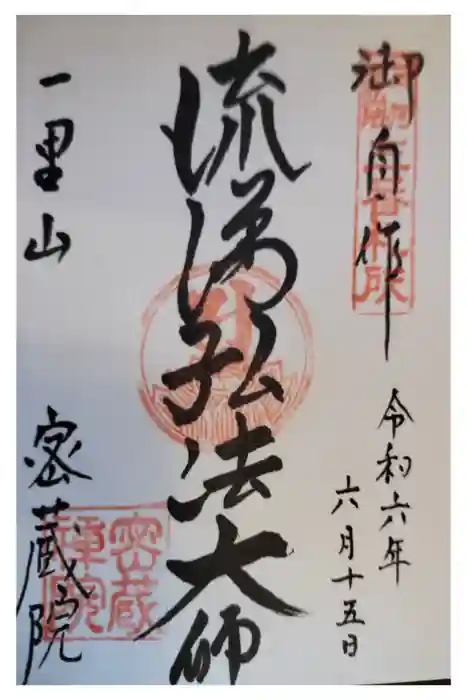 御自作
令和六年
六月十五日
流涕弘法大師
一里山
密蔵院
密蔵